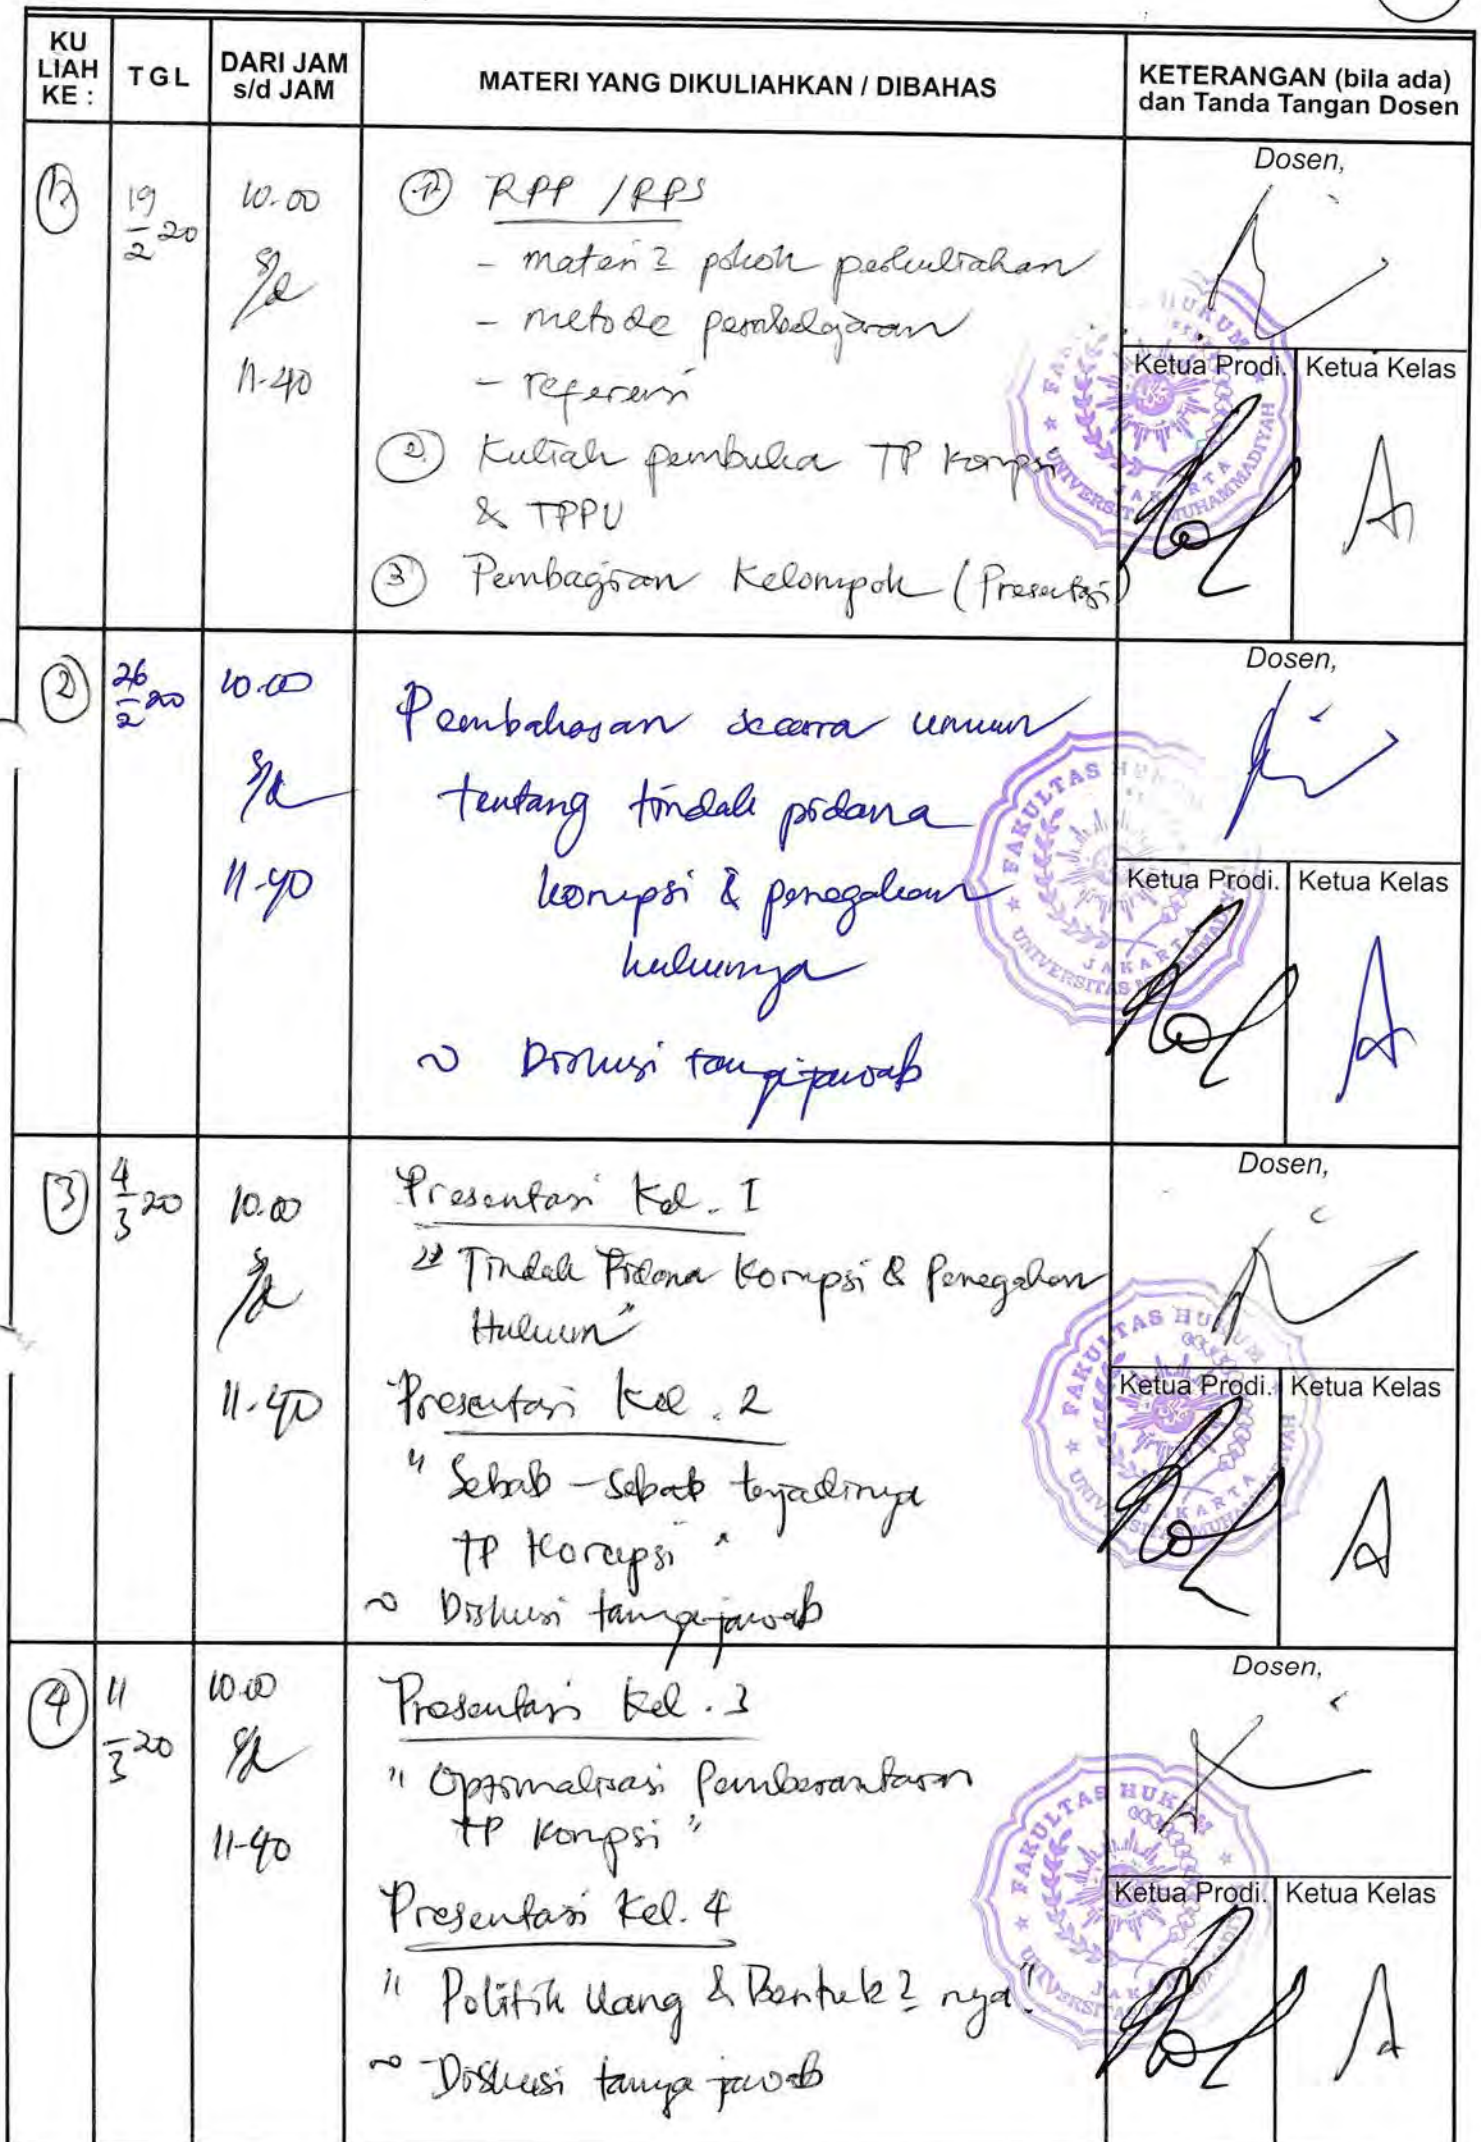 KU
LIAH
KE :
TGL
DARI JAM
s/d JAM
MATERI YANG DIKULIAHKAN / DIBAHAS
KETERANGAN (bila ada)
dan Tanda Tangan Dosen
①
19/2 20
10.00
s/d
11-40
① RPP / RPS
- materi2 pokok perkuliahan
- metode pembelajaran
- referensi
② Kuliah pembuka TP Korupsi
& TPPU
③ Pembagian Kelompok (Presentasi)
Dosen,
Ketua Prodi.
Ketua Kelas
FAKULTAS HUKUM
UNIVERSITAS MUHAMMADIYAH
JAKARTA
②
26/2 20
10.00
s/d
11-40
Pembahasan secara umum
tentang tindak pidana
korupsi & penegakan
hukumnya
~ Diskusi tanya jawab
Dosen,
Ketua Prodi.
Ketua Kelas
FAKULTAS HUKUM
UNIVERSITAS MUHAMMADIYAH
JAKARTA
③
4/3 20
10.00
s/d
11-40
Presentasi Kel. I
" Tindak Pidana Korupsi & Penegakan
Hukum "
Presentasi Kel. 2
" Sebab - Sebab terjadinya
TP Korupsi "
~ Diskusi tanya jawab
Dosen,
Ketua Prodi.
Ketua Kelas
FAKULTAS HUKUM
UNIVERSITAS MUHAMMADIYAH
JAKARTA
④
11/3 20
10.00
s/d
11-40
Presentasi Kel. 3
" Optimalisasi Pemberantasan
TP Korupsi "
Presentasi Kel. 4
" Politik Uang & Bentuk2 nya "
~ Diskusi tanya jawab
Dosen,
Ketua Prodi.
Ketua Kelas
FAKULTAS HUKUM
UNIVERSITAS
JAKARTA